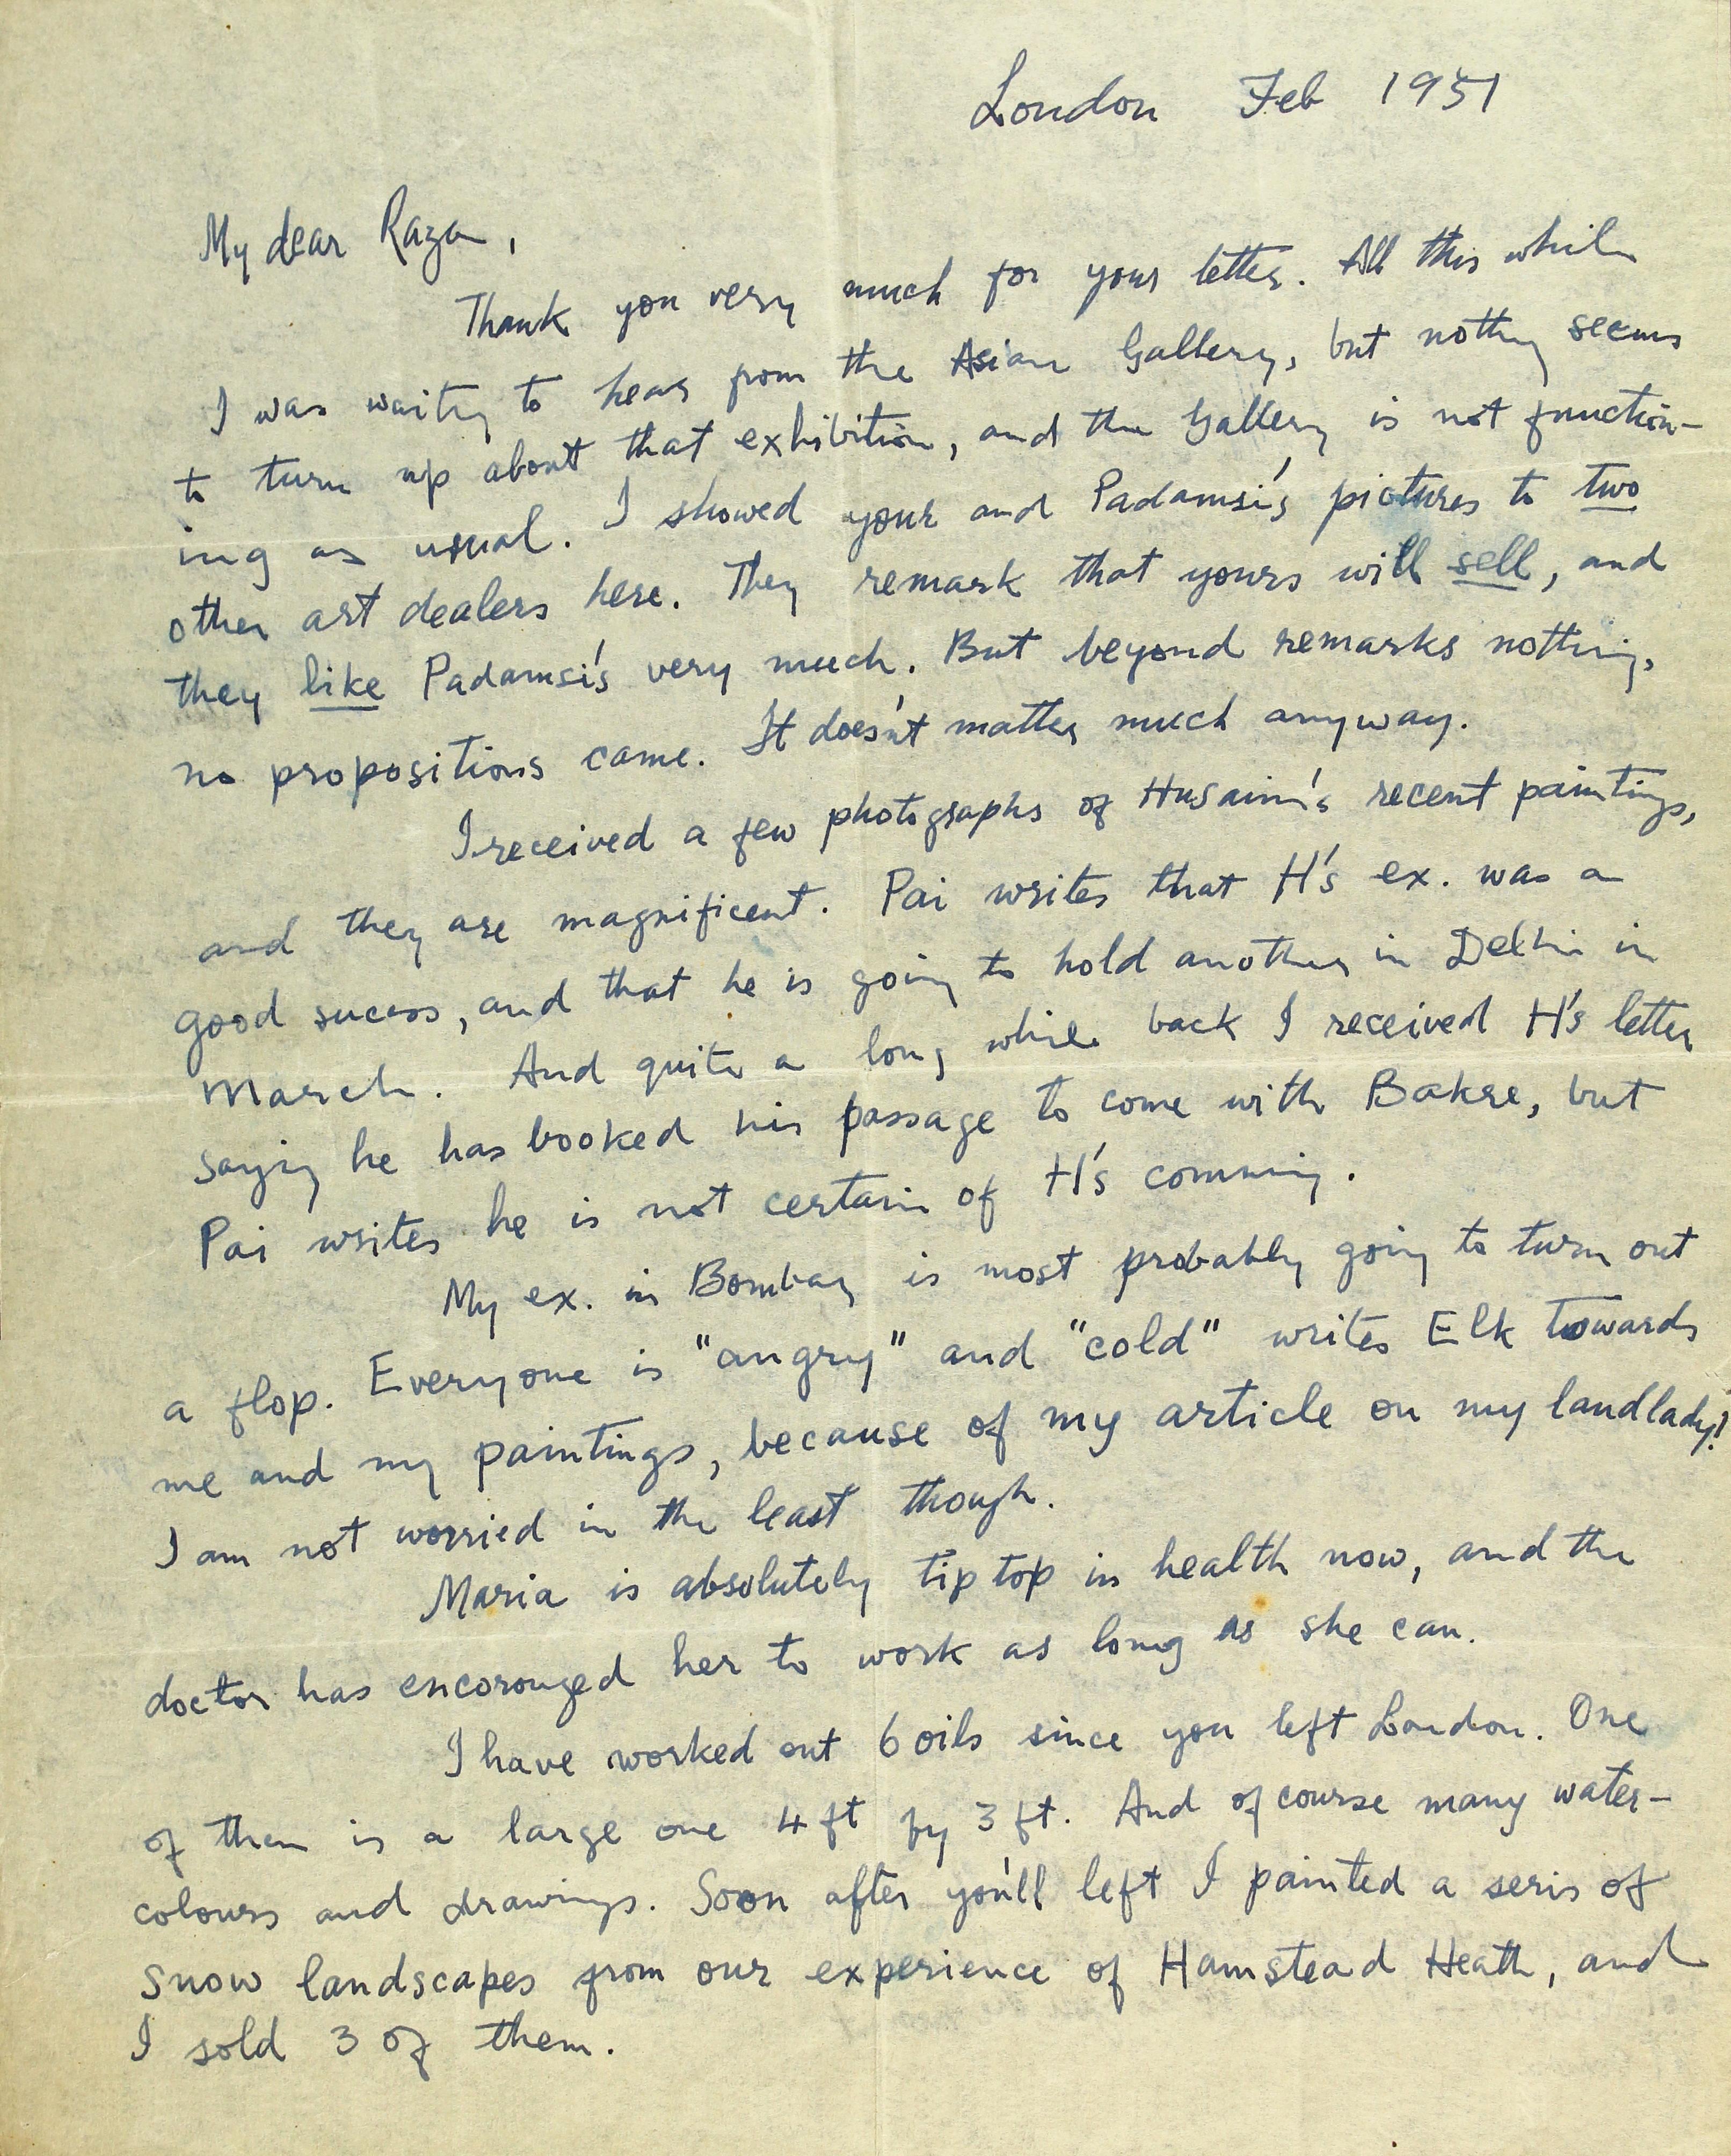 London Feb 1951
My dear Raza,
Thank you very much for your letter. All this while
I was waiting to hear from the Asian Gallery, but nothing seems
to turn up about that exhibition, and the Gallery is not function-
ing as usual. I showed your and Padamsi's pictures to two
other art dealers here. They remark that yours will sell, and
they like Padamsi's very much. But beyond remarks nothing,
no propositions came. It does'nt matter much anyway.
I received a few photographs of Husain's recent paintings,
and they are magnificent. Pai writes that H's ex. was a
good sucess, and that he is going to hold another in Delhi in
March. And quite a long while back I received H's letter
saying he has booked his passage to come with Bakre, but
Pai writes he is not certain of H's comming.
My ex. in Bombay is most probably going to turn out
a flop. Everyone is "angry" and "cold" writes Elk towards
me and my paintings, because of my article on my landlady!
I am not worried in the least though.
Maria is absolutely tip top in health now, and the
doctor has encorouged her to work as long as she can.
I have worked out 6 oils since you left London. One
of them is a large one 4 ft by 3 ft. And of course many water-
colours and drawings. Soon after you'll left I painted a seris of
snow landscapes from our experience of Hamstead Heath, and
I sold 3 of them.